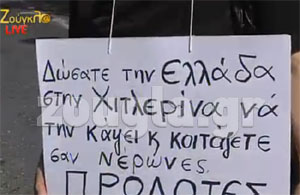 Ζούγκλα
LIVE
Δώσατε την Ελλάδα
στην Χιτλερίνα νά
την καψει κ κοιτάζετε
σαν Νερωνες.
ΠΡΟΔΟΤΕΣ
zougla.gr